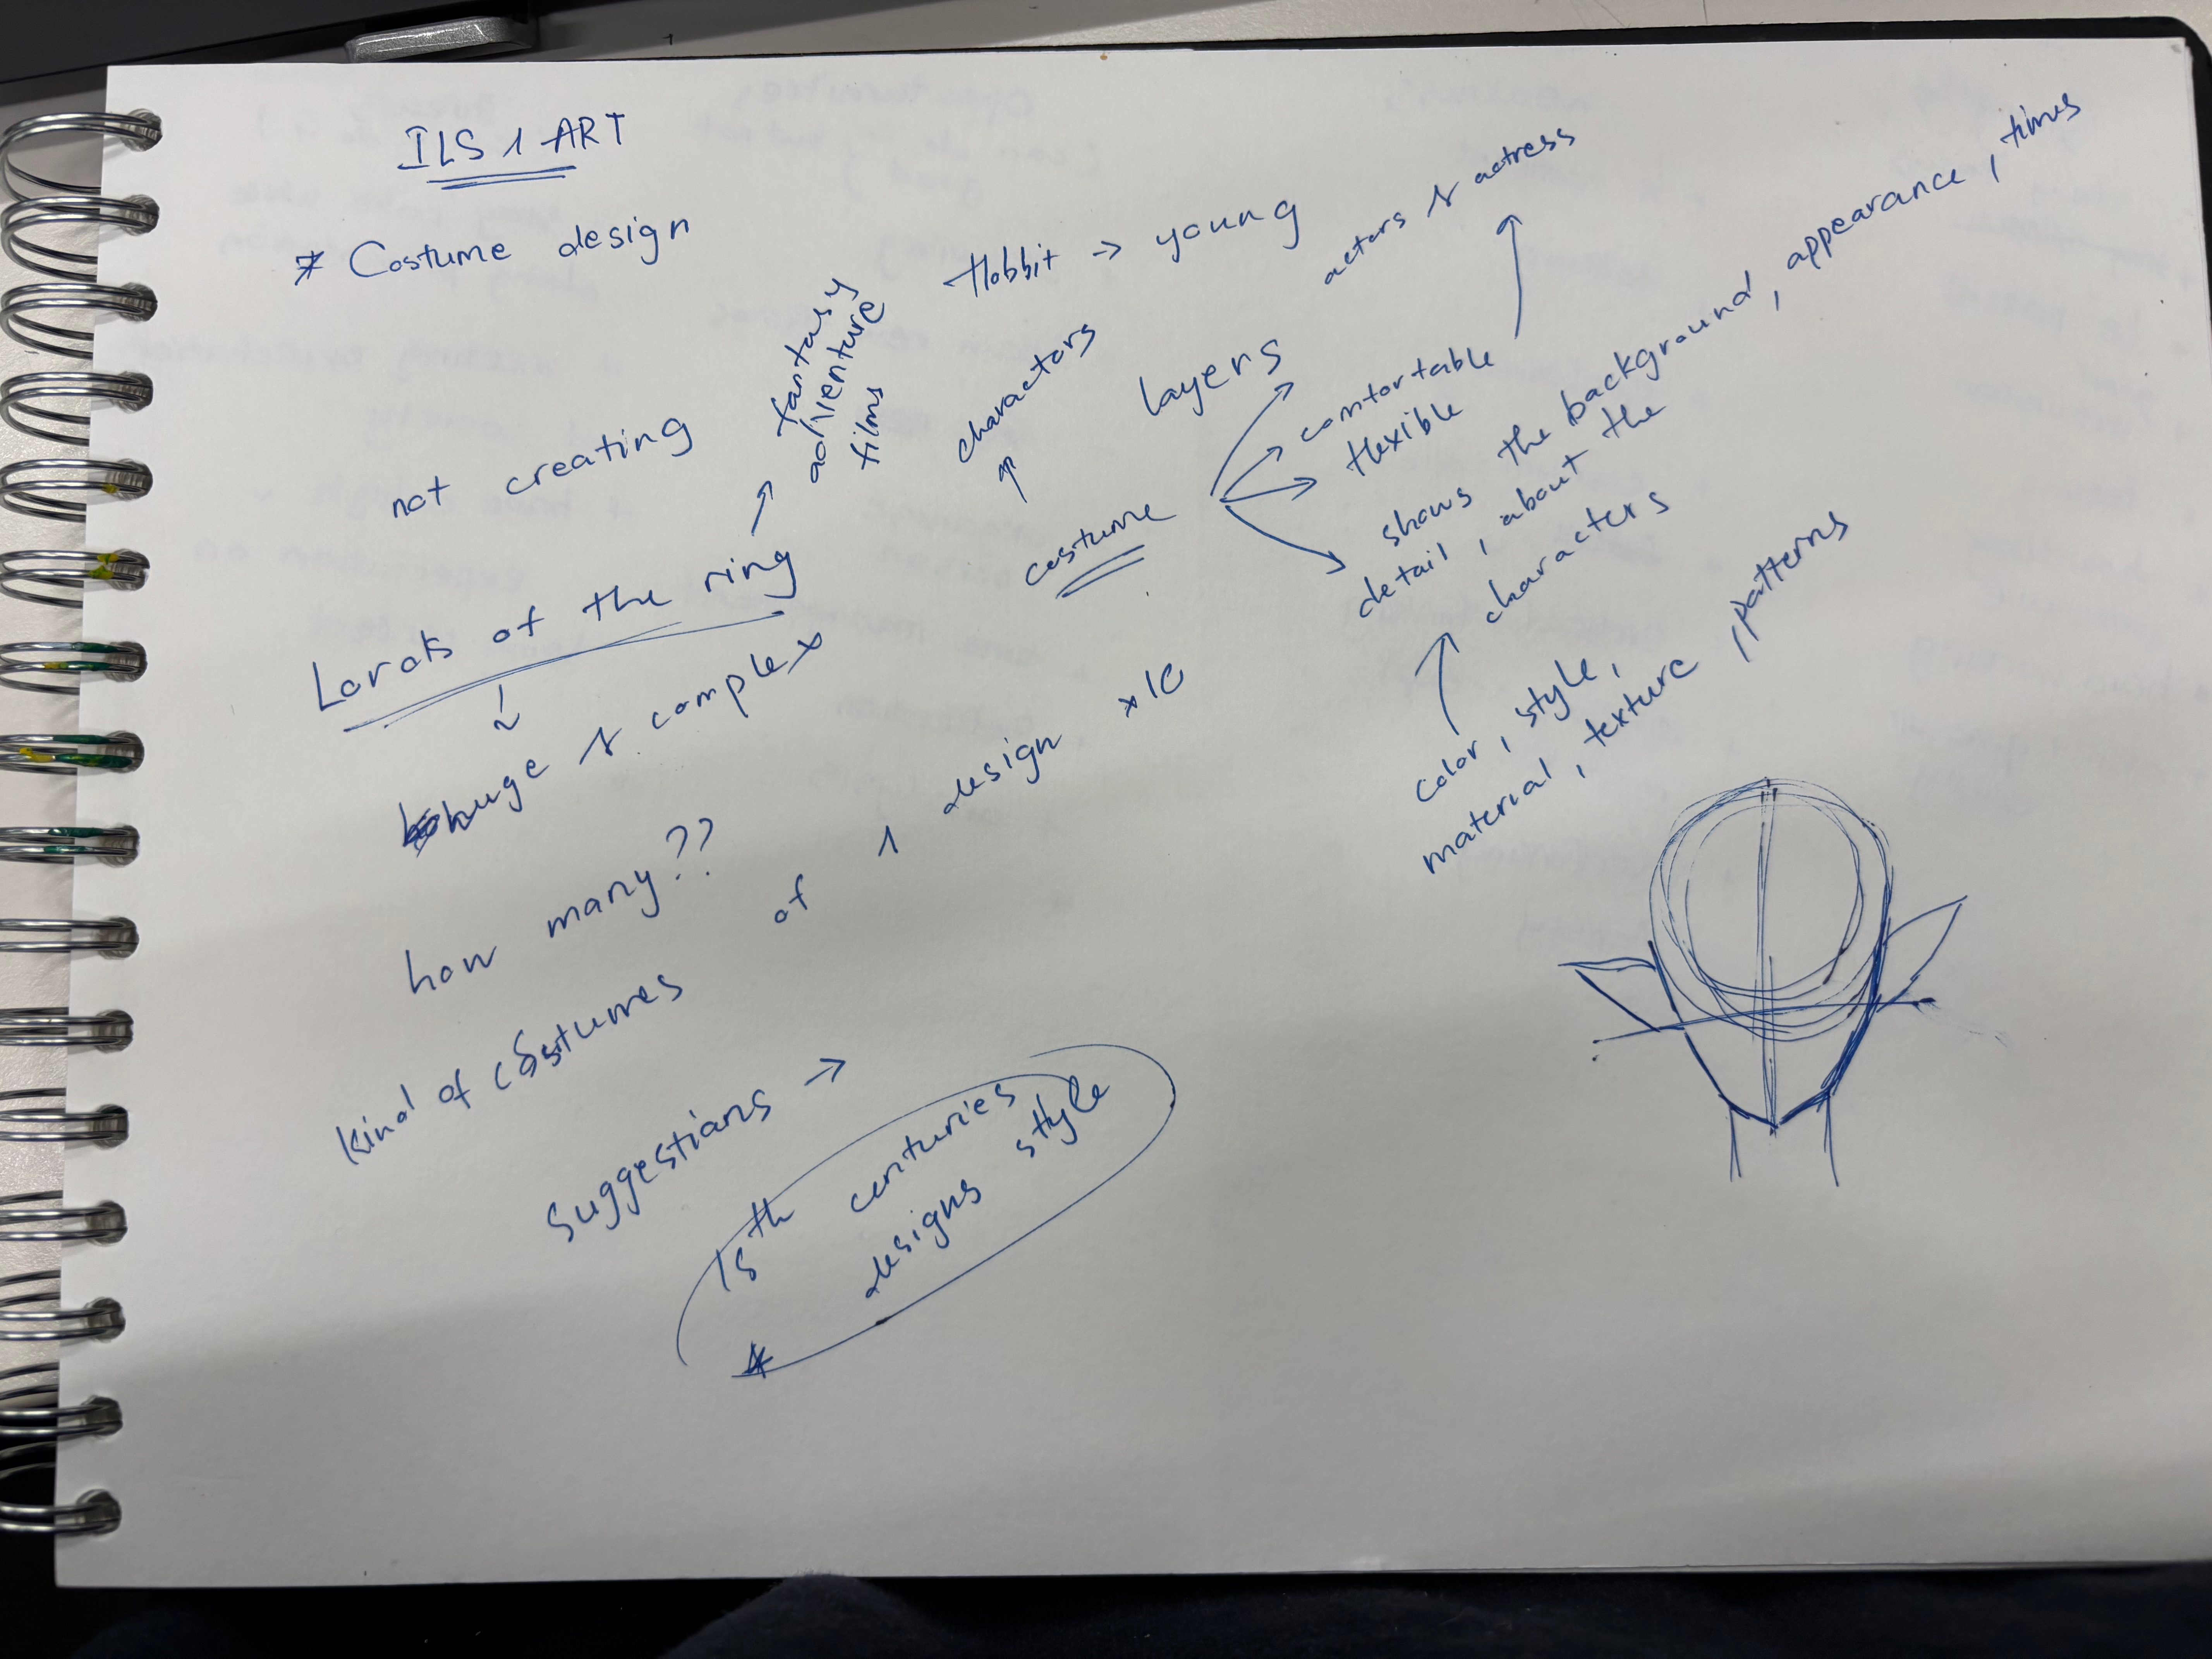 ILS 1 ART
* Costume design
Hobbit → young
actors & actress
not creating
fantasy
adventure
films
charactors
layers
comfortable
flexible
costume
shows the background, appearance, times
detail, about the
characters
color, style,
material, texture, patterns
Lords of the ring
huge & complex
how many??
Kind of costumes of 1 design x10
Suggestians →
15th centuries
designs style